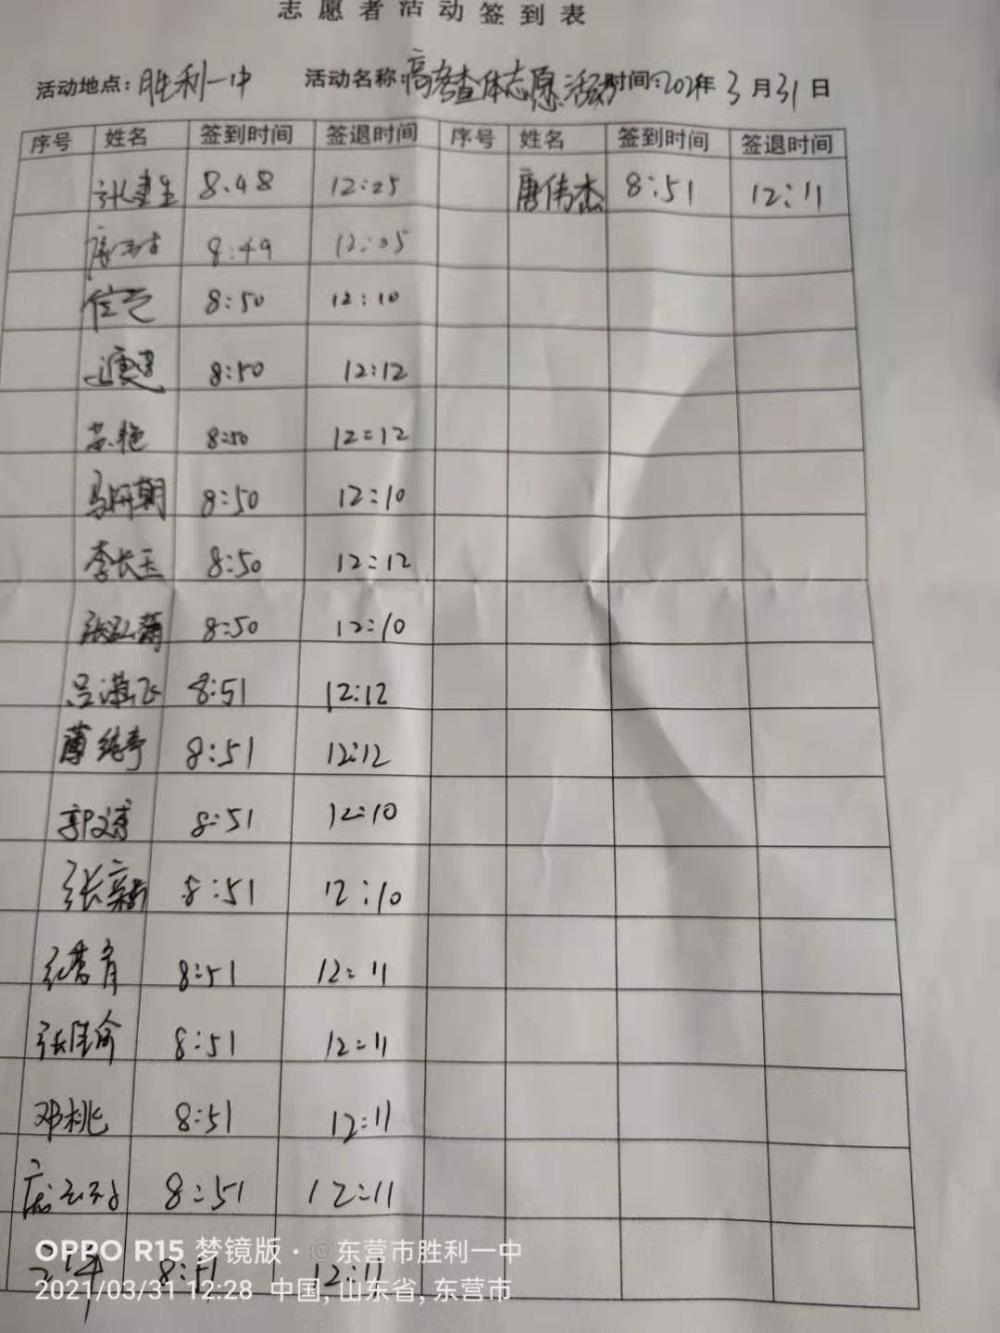 志愿者活动签到表
活动地点：胜利一中 活动名称：高考查体志愿活动 时间：2021年3月31日
序号 姓名 签到时间 签退时间 序号 姓名 签到时间 签退时间
8.48 12:25 唐伟杰 8:51 12:11
8:49 12:05
8:50 12:10
8:50 12:12
苏艳 8:50 12:12
马妍朝 8:50 12:10
李长玉 8:50 12:12
8:50 12:10
吕潇飞 8:51 12:12
8:51 12:12
8:51 12:10
张 8:51 12:10
8:51 12:11
张佳俞 8:51 12:11
邓桃 8:51 12:11
8:51 12:11
8:51 12:11
OPPO R15 梦镜版·©东营市胜利一中
2021/03/31 12:28 中国, 山东省, 东营市